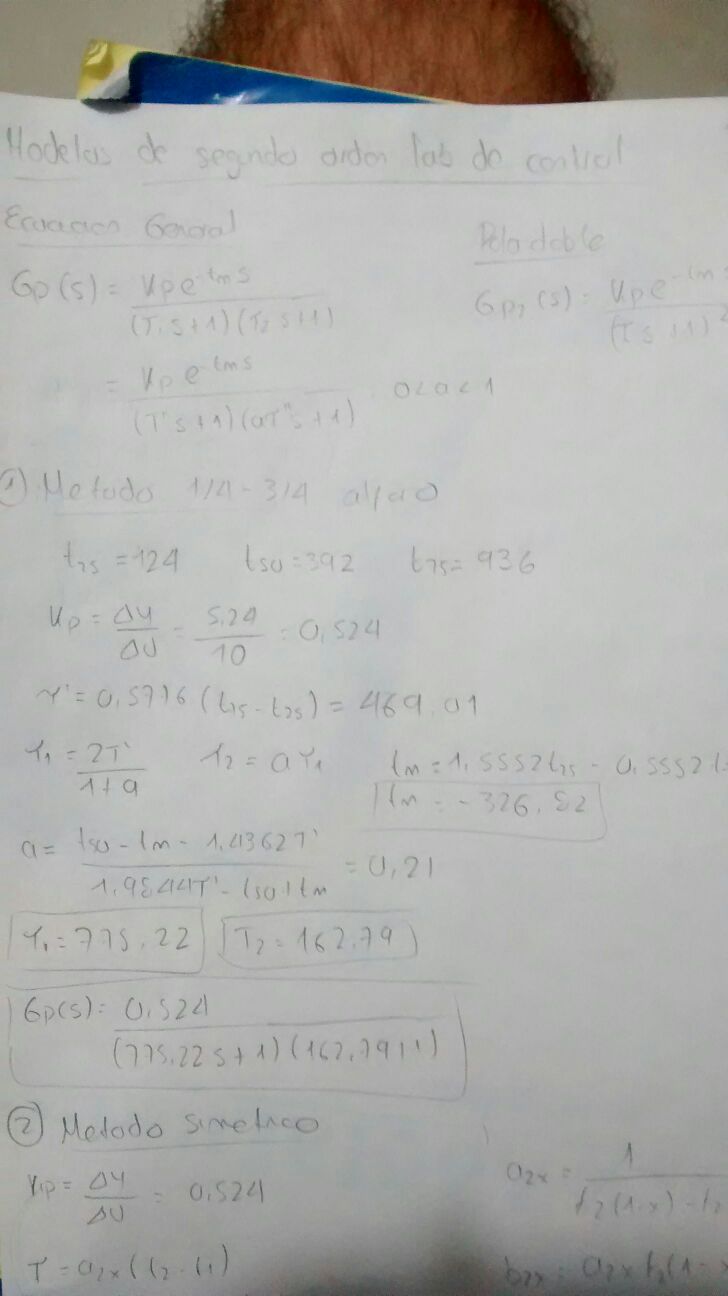 Modelos de segundo orden lab de control
Ecuacion General
Polo doble
Gp(s) = Kp e^-tms / (T1s+1)(T2s+1)
Gp2(s) = Kp e^-tms / (Ts+1)^2
= Kp e^-tms / (T's+1)(aT"s+1) 0<a<1
① Metodo 1/4-3/4 alfaro
t25 = 124 t50 = 392 t75 = 936
Kp = ΔY/ΔU = 5,24/10 = 0,524
τ' = 0,5776 (t75 - t25) = 469.01
τ1 = 2τ'/1+a τ2 = aτ1 tm = 1,5552t25 - 0,5552t
tm = -326,82
a = t50 - tm - 1,4362τ' / 1,9844τ' - t50+tm = 0,21
τ1 = 775,22 T2 = 162,79
Gp(s) = 0,524 / (775,22s+1)(162,79s+1)
② Metodo simetrico
Kp = ΔY/ΔU = 0,524
a2x = 1 / t2(1-x) - t2
τ = a2x(t2-t1)
b2x = a2x t2(1-x